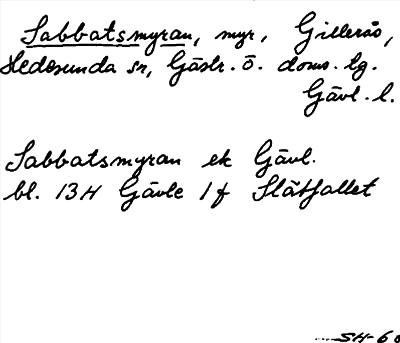 Sabbatsmyran, myr, Gillerås,
Hedesunda sn, Gästr. ö. doms. tg.
Gävl. l.
Sabbatsmyran ek Gävl.
bl. 13H Gävle 1f Slätfallet
SH-60